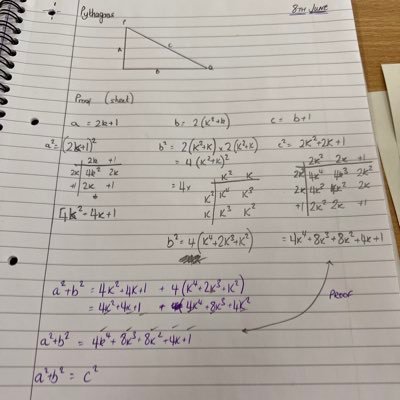 Pythagoras
8TH JUNE
P
A
C
B
Q
Proof (sheet)
a = 2k+1 b = 2(k²+k) c = b+1
a² = (2k+1)² b² = 2(k²+k) × 2(k²+k) c² = 2k²+2k+1
= 4(k²+k)²
2k +1
2k 4k² 2k
+1 2k +1
4k²+4k+1
= 4×
k² k
k² k⁴ k³
k k³ k²
2k² 2k +1
2k² 4k⁴ 4k³ 2k²
2k 4k³ 4k² 2k
+1 2k² 2k +1
b² = 4(k⁴+2k³+k²) = 4k⁴+8k³+8k²+4k+1
a²+b² = 4k²+4k+1 + 4(k⁴+2k³+k²)
= 4k²+4k+1 + 4k⁴+8k³+4k²
Proof
a²+b² = 4k⁴+8k³+8k²+4k+1
a²+b² = c²